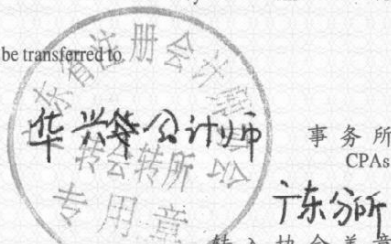 be transferred to
广东省注册会计师协会
转会转所
专用章
华兴会计师
事务所
CPAs
广东分所
转入协会盖章